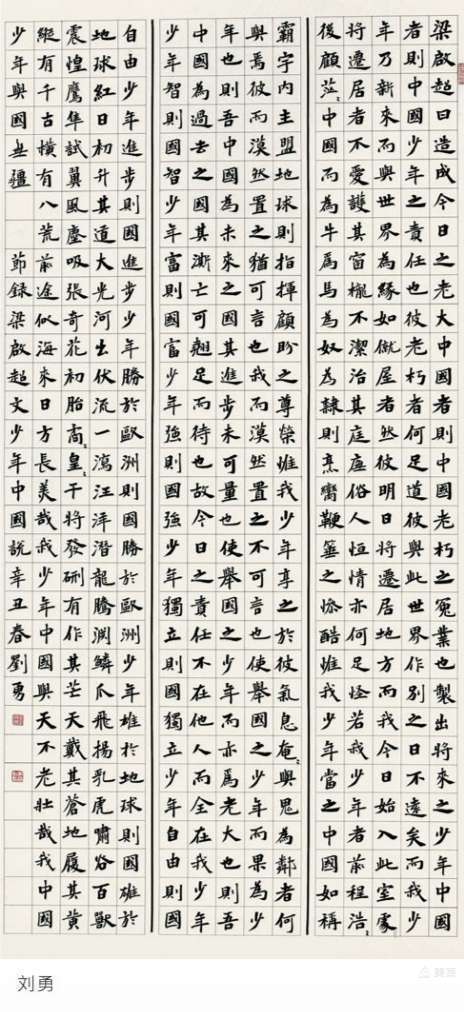 梁啟超曰造成今日之老大中國者則中國老朽之冤業也製出將來之少年中國
者則中國少年之責任也彼老朽者何足道彼與此世界作別之日不遠矣而我少
年乃新來而與世界為緣如僦屋者然彼明日將遷居地方而我今日始入此室處
將遷居者不愛護其窗櫳不潔治其庭廡俗人恒情亦何足怪若我少年者前程浩々
後顧茫々中國而為牛為馬為奴為隸則烹臠鞭箠之慘酷惟我少年當之中國如稱
霸宇內主盟地球則指揮顧盼之尊榮惟我少年享之於彼氣息奄々與鬼為鄰者何
與焉彼而漠然置之猶可言也我而漠然置之不可言也使舉國之少年而果為少
年也則吾中國為未來之國其進步未可量也使舉國之少年而亦為老大也則吾
中國為過去之國其澌亡可翹足而待也故今日之責任不在他人而全在我少年
少年智則國智少年富則國富少年強則國強少年獨立則國獨立少年自由則國
自由少年進步則國進步少年勝於歐洲則國勝於歐洲少年雄於地球則國雄於
地球紅日初升其道大光河出伏流一瀉汪洋潛龍騰淵鱗爪飛揚乳虎嘯谷百獸
震惶鷹隼試翼風塵吸張奇花初胎矞々皇々干將發硎有作其芒天戴其蒼地履其黃
縱有千古橫有八荒前途似海來日方長美哉我少年中國與天不老壯哉我中國
少年與國無疆 節錄梁啟超文少年中國說辛丑春劉勇
刘勇